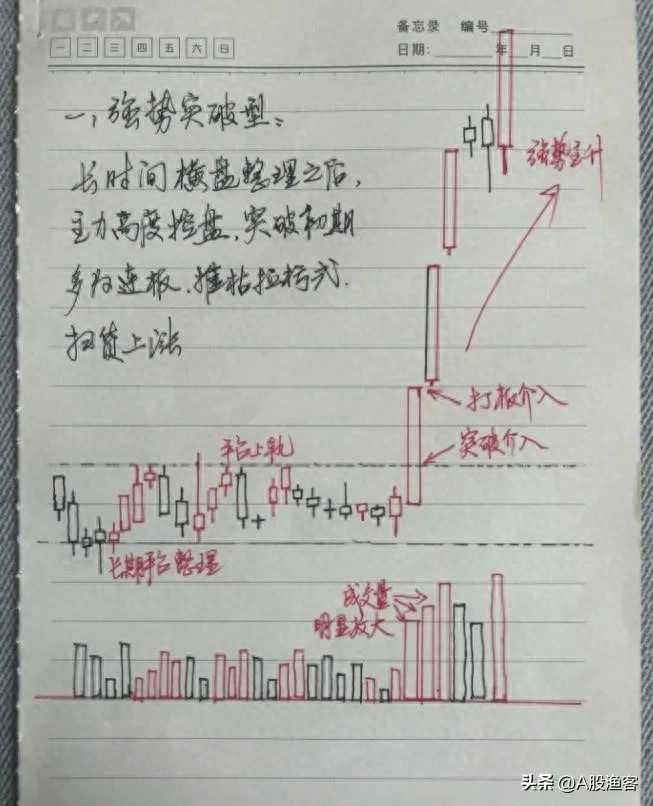 备忘录 编号
一 二 三 四 五 六 日
日期: 年 月 日
一、强势突破型:
长时间横盘整理之后,
主力高度控盘,突破初期
多为连板、推枯拉朽式
扫货上涨
强势主升
打板介入
突破介入
平台上轨
长期平台整理
成交量
明显放大
头条 @A股渔客